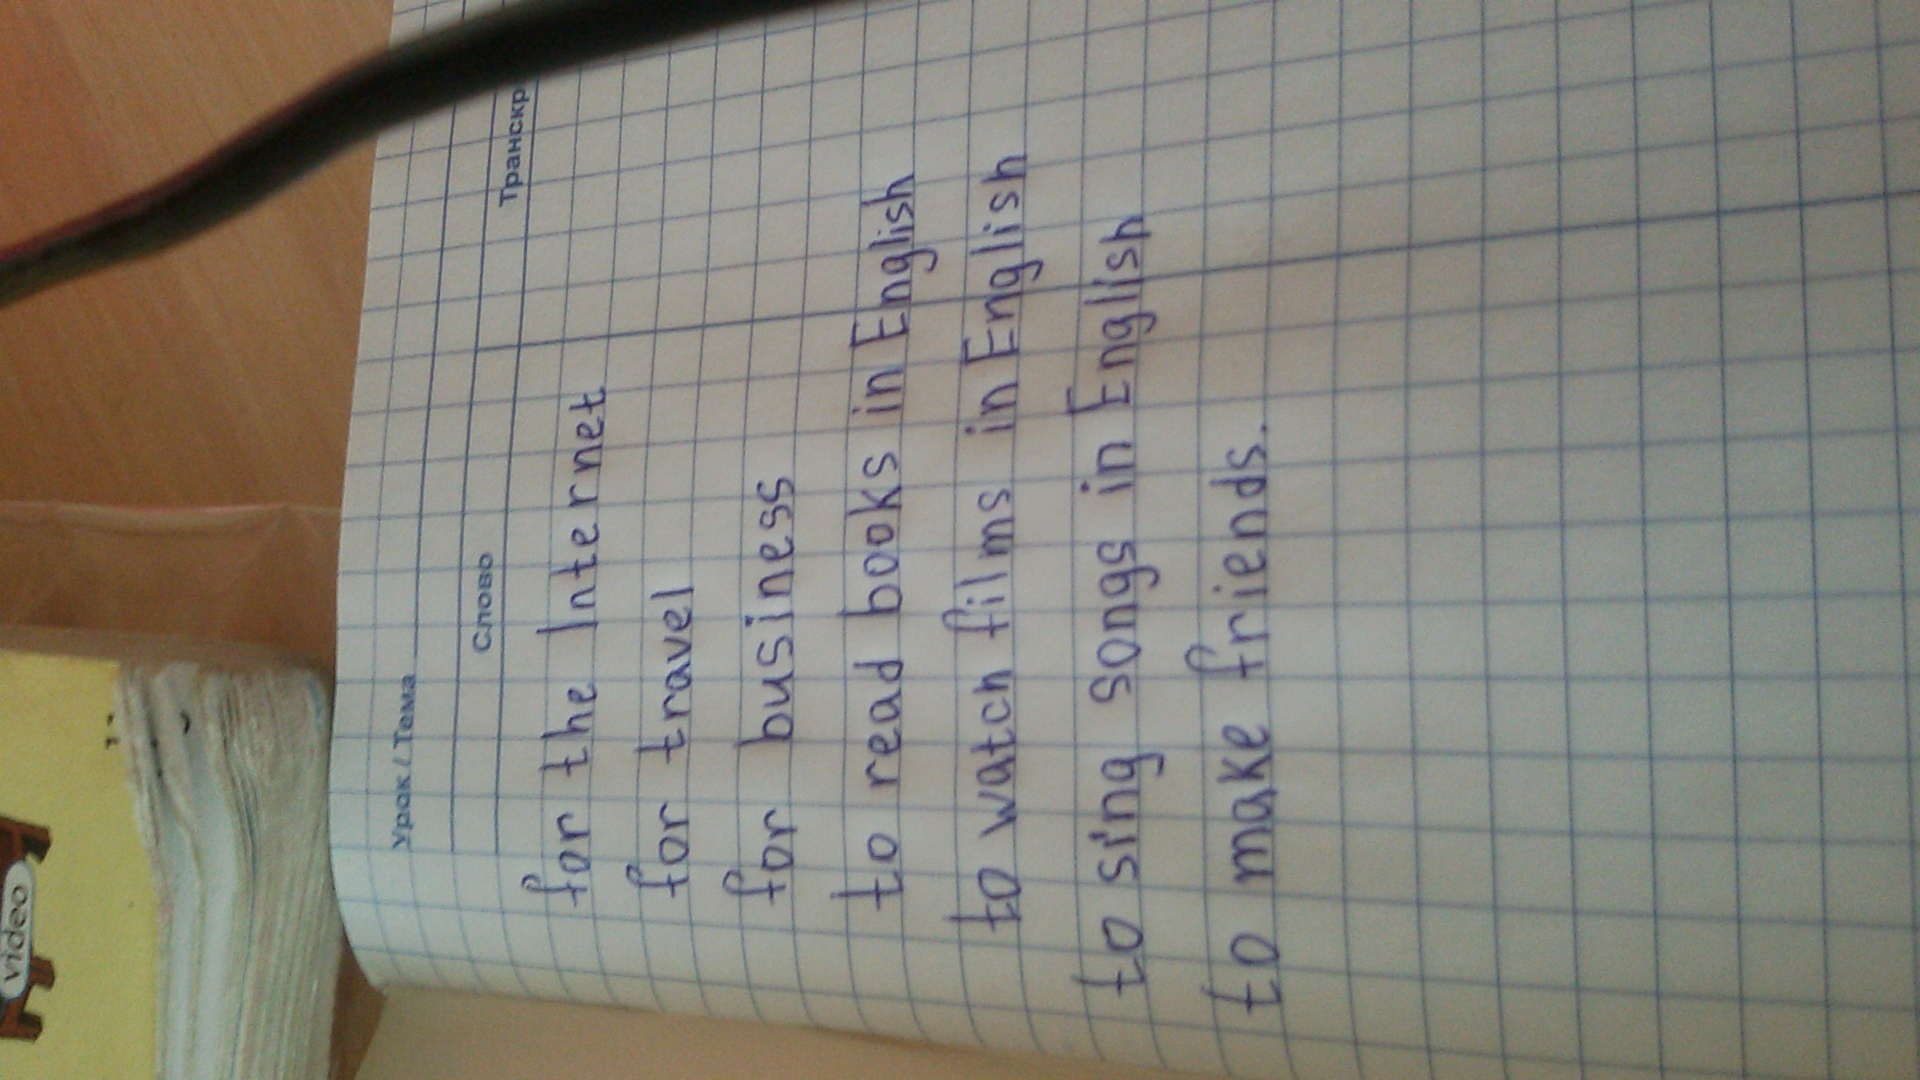 Урок / Тема
Слово
Транскр
for the Internet
for travel
for business
to read books in English
to watch films in English
to sing songs in English
to make friends.
video